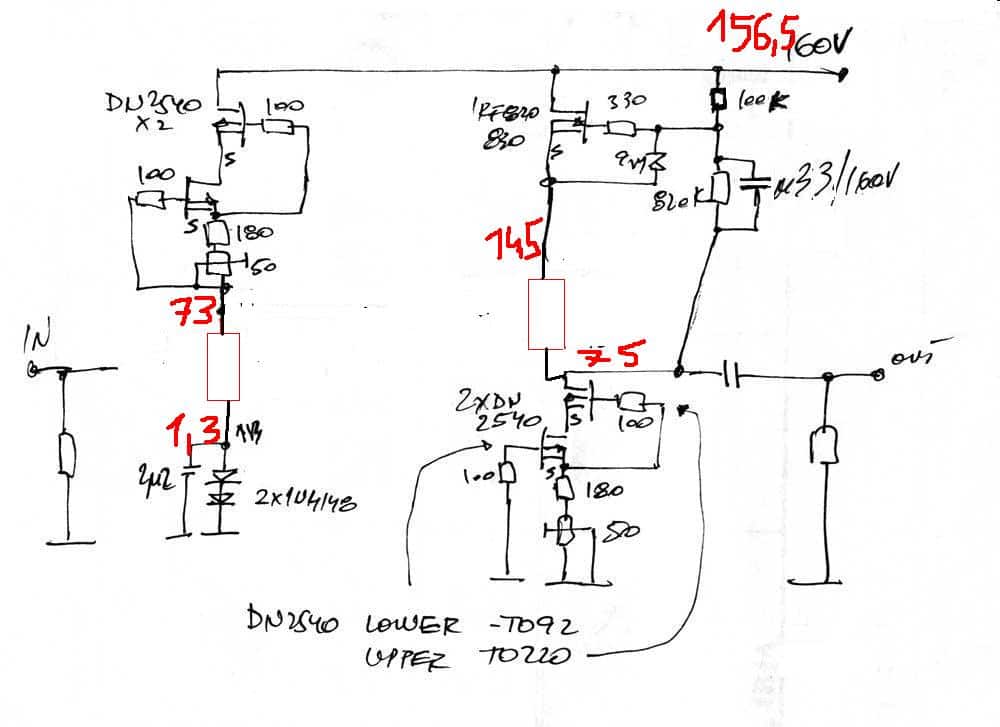 156,5
160V
DN2540
X2
100
IRF820
830
330
100K
S
100
9V1
S
820K
033/160V
S
180
50
145
73
IN
75
OUT
1,3
1V3
2XDN
2540
S
100
2µ2
2X1N4148
100
S
180
500
DN2540 LOWER -TO92
UPPER TO220